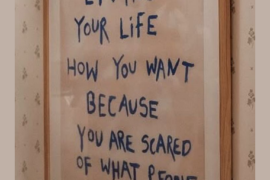 YOUR LIFE
HOW YOU WANT
BECAUSE
YOU ARE SCARED
OF WHAT PEOPLE